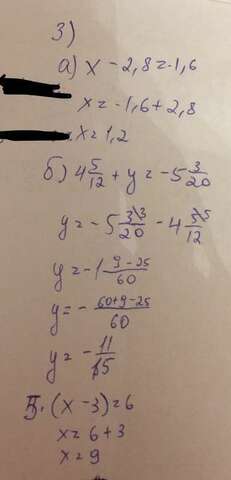 3)
а) x - 2,8 = -1,6
x = -1,6 + 2,8
x = 1,2
б) 4 5/12 + y = -5 3/20
y = -5 3\3/20 - 4 5\5/12
y = -1 9-25/60
y = - 60+9-25/60
y = - 11/15
5. (x - 3) = 6
x = 6 + 3
x = 9